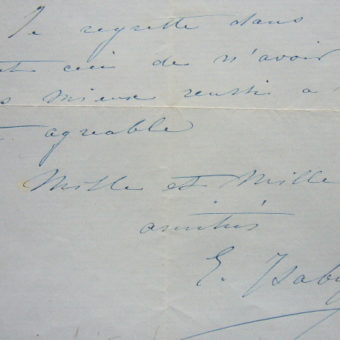 Je regrette dans
ceci de n'avoir
mieux reussi a
agreable
Mille et Mille
amities
E. Isabey